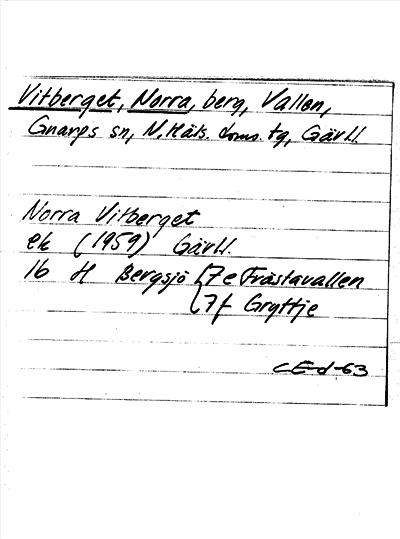 Vitberget, Norra, berg, Vallen,
Gnarps sn, N. Häls. doms. tg, Gävl l.
Norra Vitberget
ek (1959) Gävl l.
16 H Bergsjö 7e Frästavallen
7f Gryttje
CE-d-63